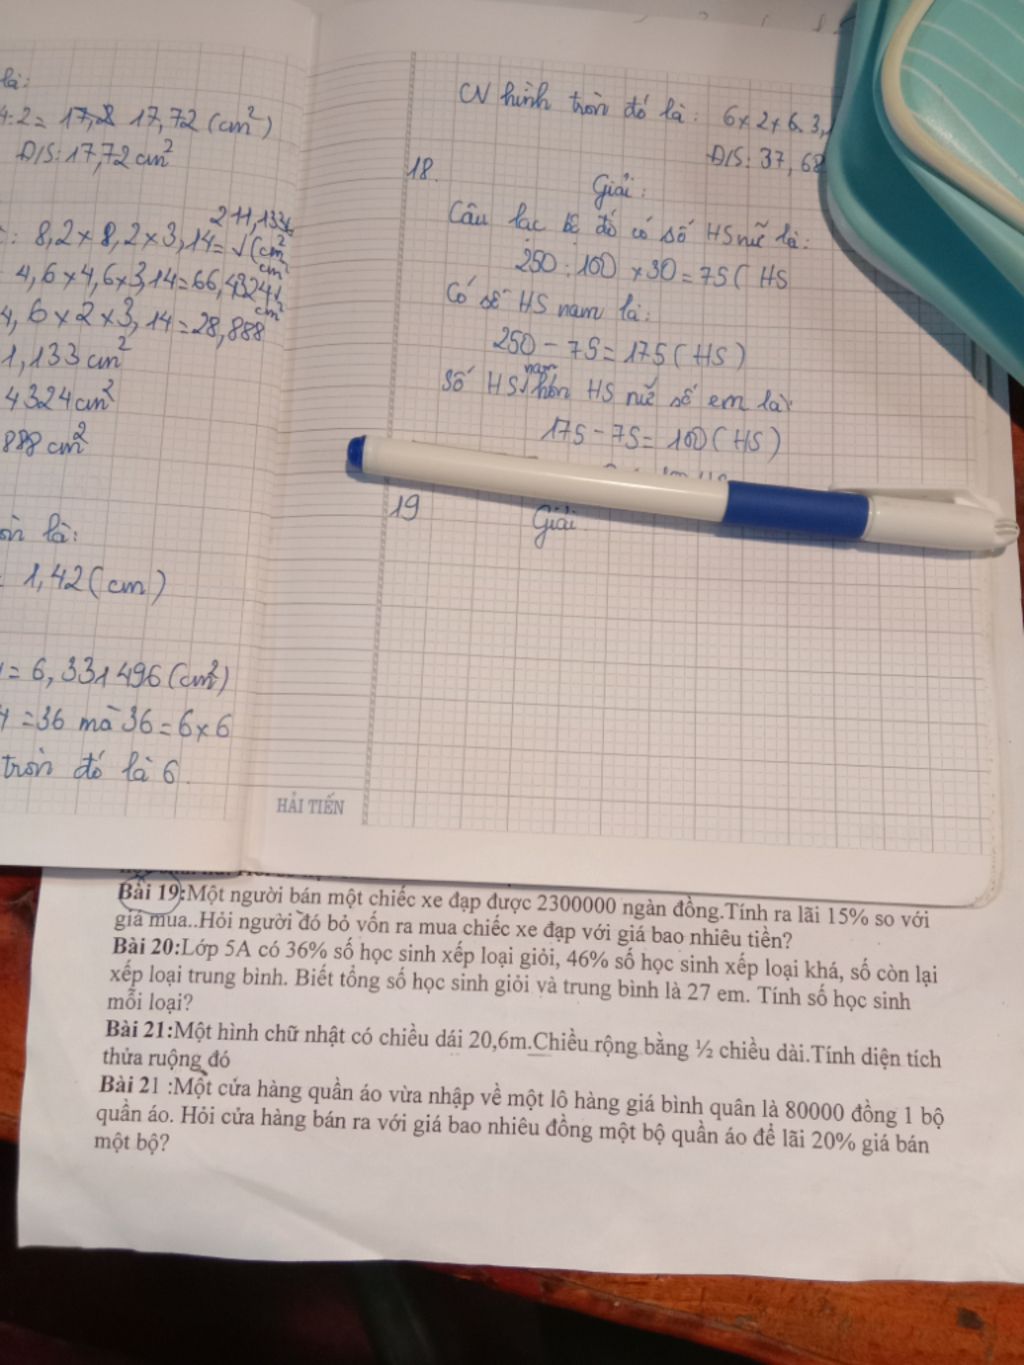 là:
4:2= 17,8 17,72 (cm²)
Đ/S: 17,72 cm²
211,1336
: 8,2 × 8,2 × 3,14 = √(cm²
4,6 × 4,6 × 3,14 = 66,4324 cm²
4,6 × 2 × 3,14 = 28,888 cm²
1,133 cm²
4324 cm²
888 cm²
là:
1,42 (cm)
= 6,331496 (cm²)
4 = 36 mà 36 = 6 × 6
tròn đó là 6.
HẢI TIẾN
CV hình tròn đó là: 6 × 2 × 6 3,1
Đ/S: 37,68
18.
Giải:
Câu lạc bộ đó có số HS nữ là:
250 : 100 × 30 = 75 ( HS
Có số HS nam là:
250 - 75 = 175 ( HS )
Số HS nam hơn HS nữ số em là:
175 - 75 = 100 ( HS )
19
Giải
Bài 19:Một người bán một chiếc xe đạp được 2300000 ngàn đồng.Tính ra lãi 15% so với
giá mua..Hỏi người đó bỏ vốn ra mua chiếc xe đạp với giá bao nhiêu tiền?
Bài 20:Lớp 5A có 36% số học sinh xếp loại giỏi, 46% số học sinh xếp loại khá, số còn lại
xếp loại trung bình. Biết tổng số học sinh giỏi và trung bình là 27 em. Tính số học sinh
mỗi loại?
Bài 21:Một hình chữ nhật có chiều dái 20,6m.Chiều rộng bằng ½ chiều dài.Tính diện tích
thửa ruộng đó
Bài 21 :Một cửa hàng quần áo vừa nhập về một lô hàng giá bình quân là 80000 đồng 1 bộ
quần áo. Hỏi cửa hàng bán ra với giá bao nhiêu đồng một bộ quần áo để lãi 20% giá bán
một bộ?